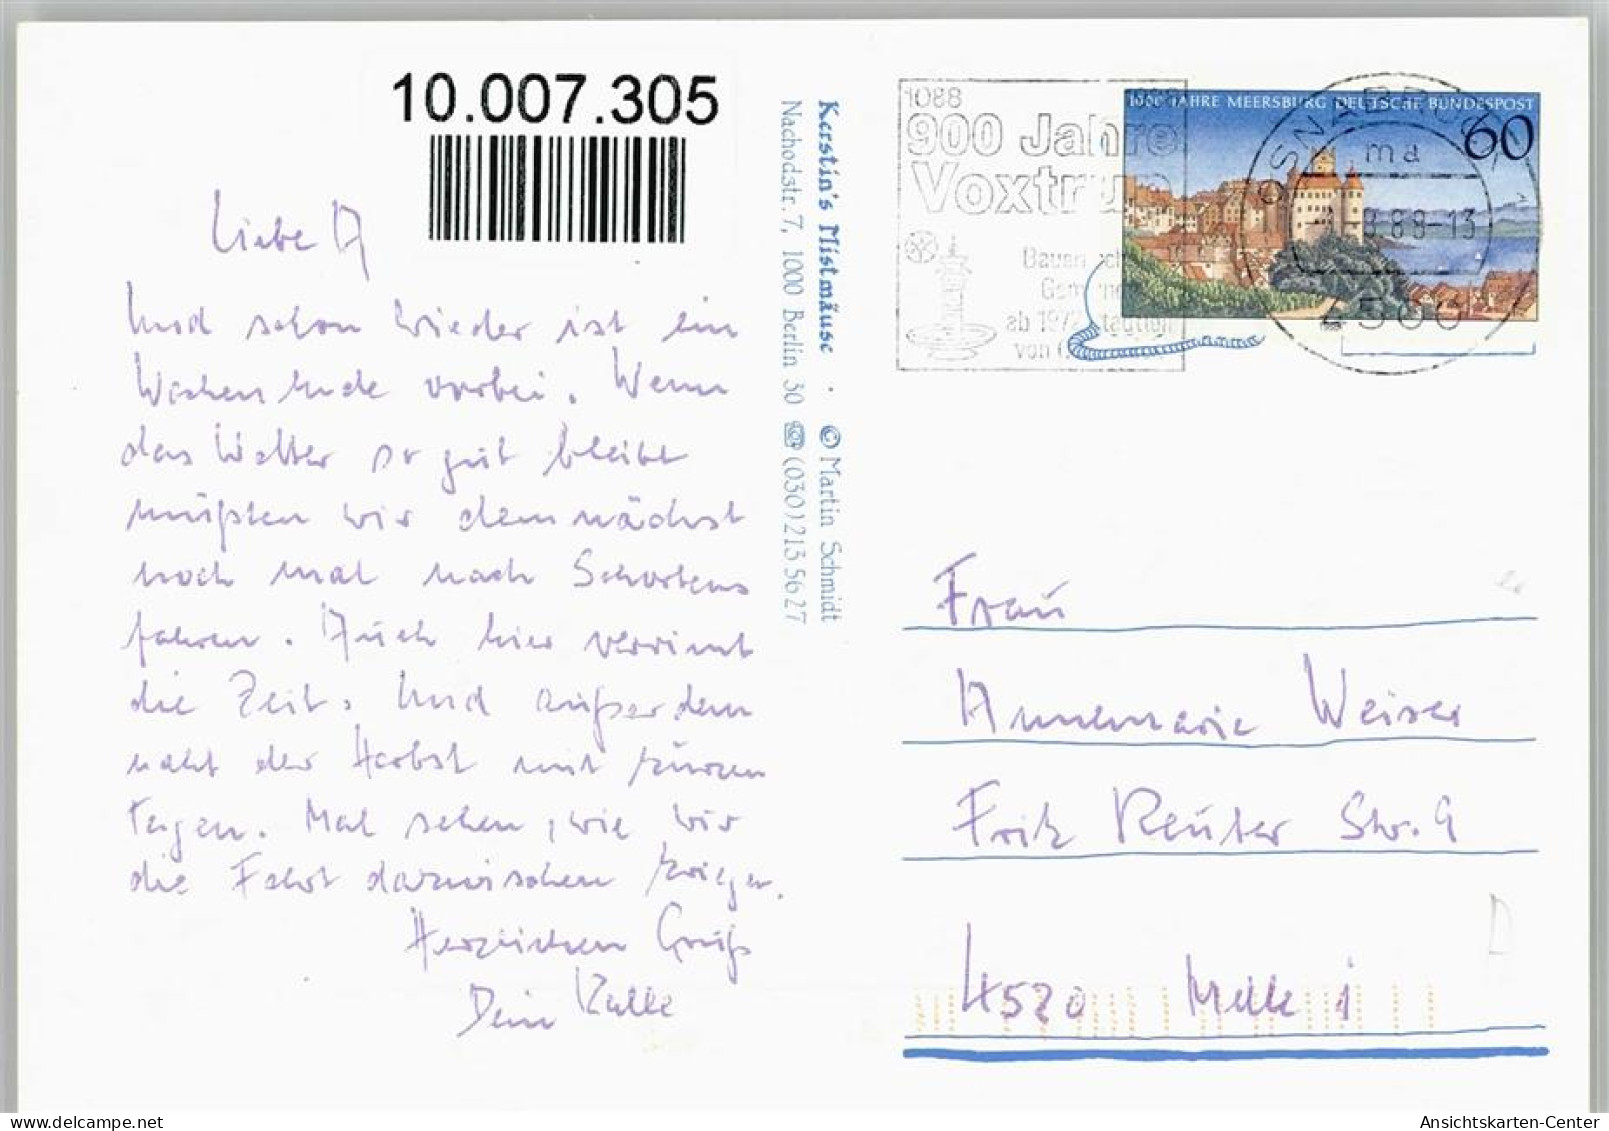 10.007.305
Liebe A
Und schon wieder ist ein
Wochenende vorbei. Wenn
das Wetter so gut bleibt
müßten wir demnächst
noch mal nach Schortens
fahren. Auch hier verrinnt
die Zeit. Und außerdem
naht der Herbst mit kurzen
Tagen. Mal sehen, wie wir
die Fahrt dazwischen kriegen.
Herzlichen Gruß
Dein Kalle
Kerstin's Mistmäuse · © Martin Schmidt
Nachodstr. 7, 1000 Berlin 30 ☎ (030) 213 56 27
1088
900 Jahre
Voxtrup
ab 1972
von
1000 JAHRE MEERSBURG DEUTSCHE BUNDESPOST
60
OSNABRÜCK
ma
8.88-13
4500
Frau
Annemarie Weiser
Fritz Reuter Str. 9
4520 Melle 1
D
Ansichtskarten-Center